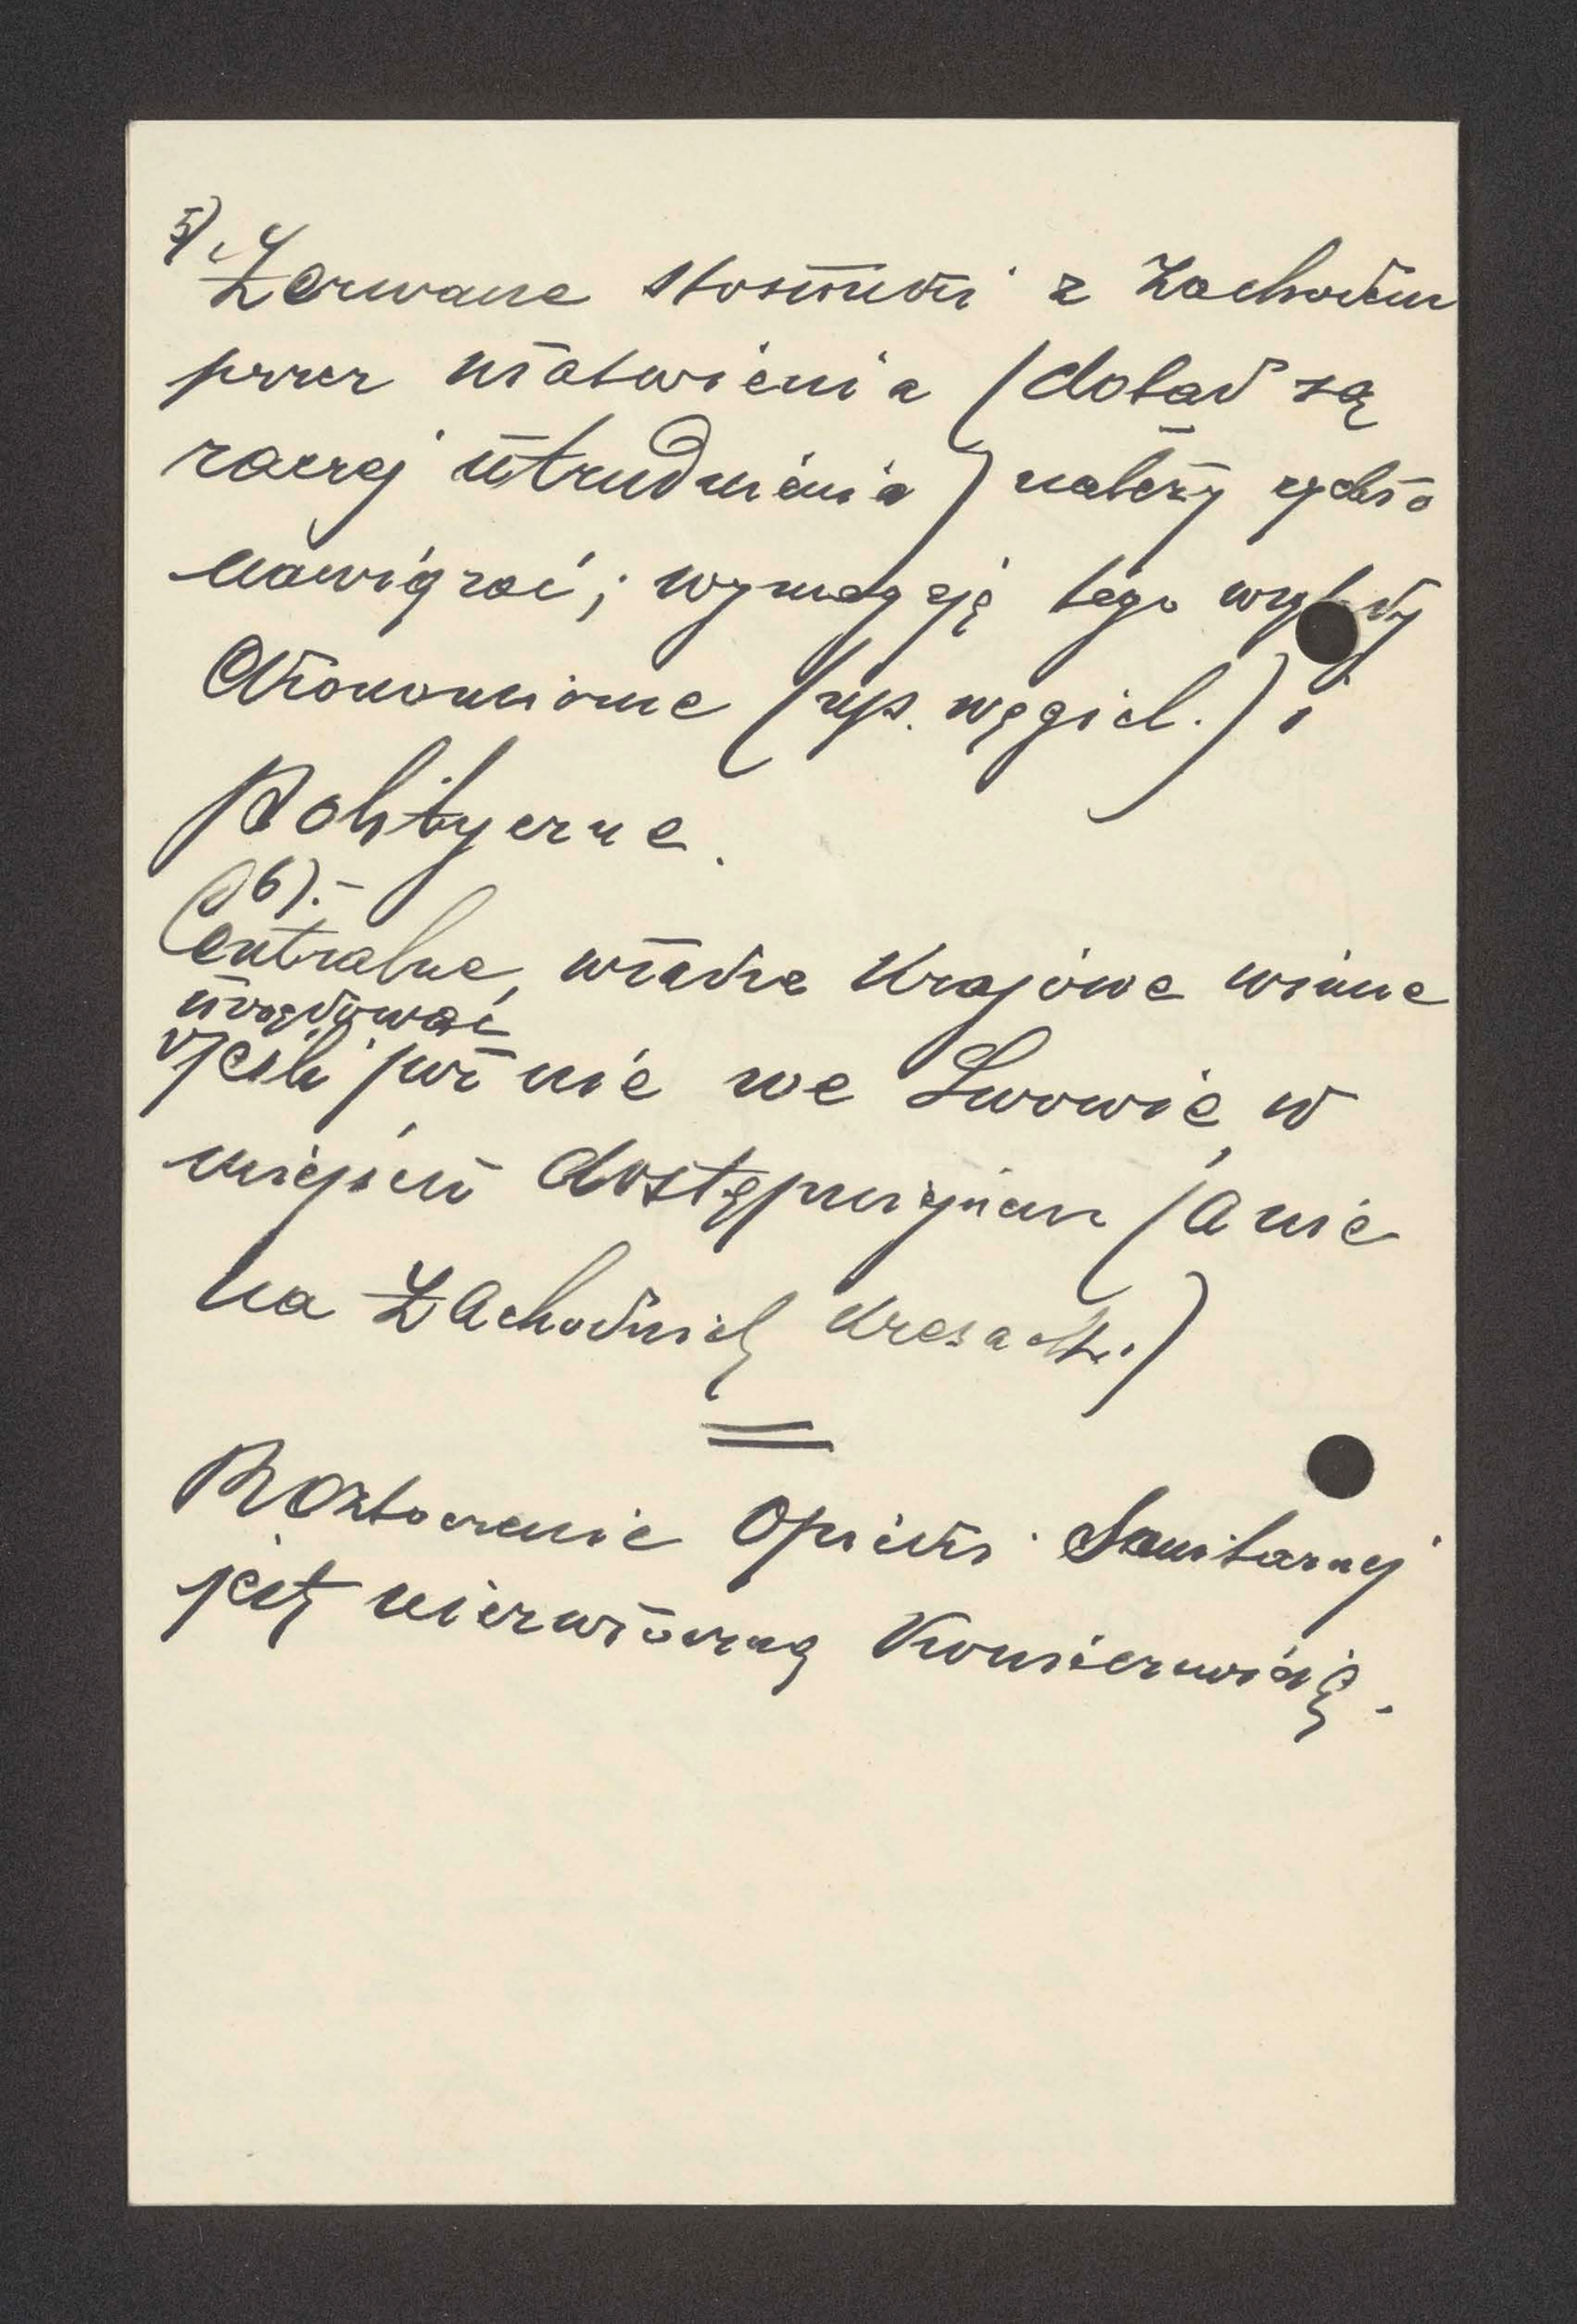 5)
Zerwane stosunki z Zachodem
przez ułatwienia (dotąd są
raczej utrudnienia) należy rychło
nawiązać; wymagają tego względy
ekonomiczne (np. węgiel.) i
Polityczne.
6).-
Centralne, władze Krajowe winne
urzędować
jeśli już nie we Lwowie, w
miejscu dostępniejszem (a nie
na Zachodnich Kresach.)
Roztoczenie Opieki Sanitarnej
jest niezwłoczną Koniecznością.